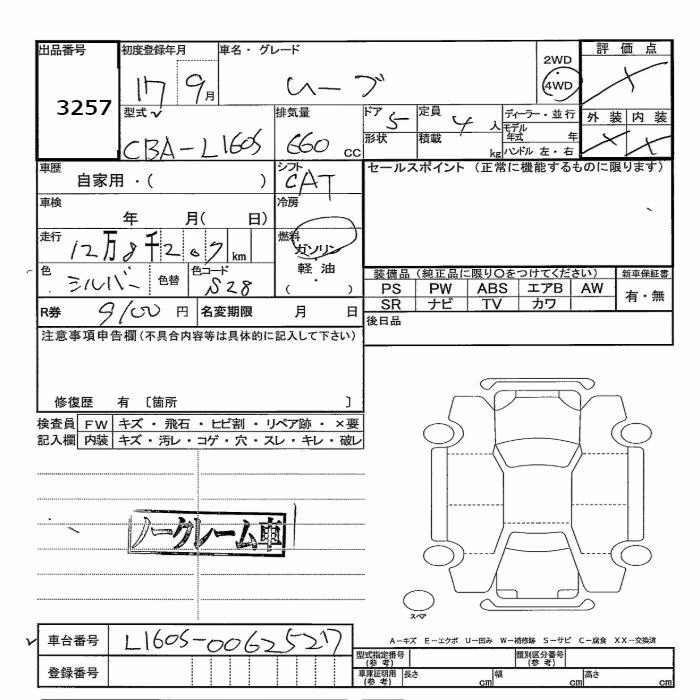 出品番号 初度登録年月 車名・グレード 評価点
3257 17 9月 ムーブ 2WD
4WD
型式 排気量 ドア 定員 ディーラー・並行 外装 内装
CBA-L160S 660 cc 5 4人 モデル年式 年
形状 積載 kg ハンドル 左・右
車歴 シフト セールスポイント (正常に機能するものに限ります)
自家用・( ) CAT
車検 冷房
年 月( 日)
走行 燃料
12万8千207km ガソリン
色 色替 色コード 軽油 装備品(純正品に限り○をつけてください) 新車保証書
シルバー S28 ・( ) PS PW ABS エアB AW 有・無
SR ナビ TV カワ
R券 9100円 名変期限 月 日 後日品
注意事項申告欄(不具合内容等は具体的に記入して下さい)
修復歴 有 〔箇所 〕
検査員 FW キズ・飛石・ヒビ割・リペア跡・×要
記入欄 内装 キズ・汚レ・コゲ・穴・スレ・キレ・破レ
ノークレーム車
スペア
A-キズ E-エクボ U-凹み W-補修跡 S-サビ C-腐食 XX-交換済
車台番号 L160S-0062527
登録番号
型式指定番号(参考) 類別区分番号(参考)
車庫証明用(参考) 長さ cm 幅 cm 高さ cm